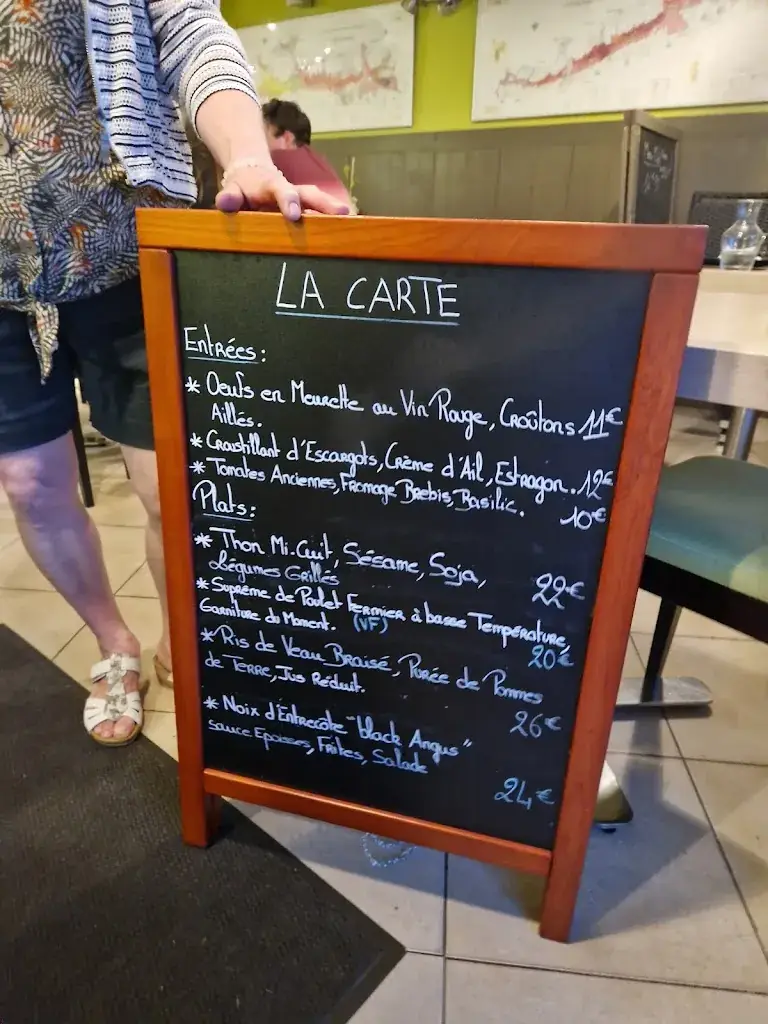 LA CARTE
Entrées:
* Oeufs en Meurette au Vin Rouge, Croûtons 11€
Aillés.
* Croustillant d'Escargots, Crème d'Ail, Estragon. 12€
* Tomates Anciennes, Fromage Brebis, Basilic. 10€
Plats:
* Thon Mi-Cuit, Sésame, Soja,
Légumes Grillés 22€
* Suprème de Poulet Fermier à basse Température,
Garniture du Moment. (VF) 20€
* Ris de Veau Braisé, Purée de Pommes
de Terre, Jus Réduit. 26€
* Noix d'Entrecôte "black Angus"
sauce Epoisses, Frites, Salade
24€